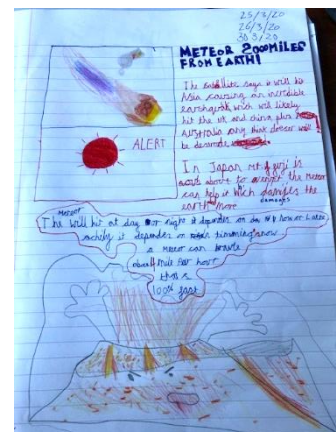 25/3/20
26/3/20
30/3/20
METEOR 2000MILES
FROM EARTH!
ALERT
The satellite says it will hit
Asia causing an incredible
earthquake which will likely
hit the uk and china plus
australia any think closer will
be
In Japan mt fuji is
about to the meteor
can help it which damages the
earth more
meteor
The will hit at day or night it depends on
it depends on timming now
a meteor can travle
mile per hour
that's
100% fast